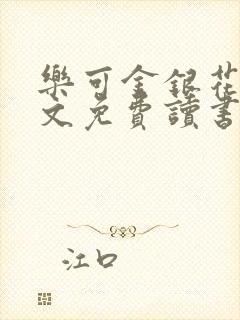 樂可金銀花
文免費讀書
江口